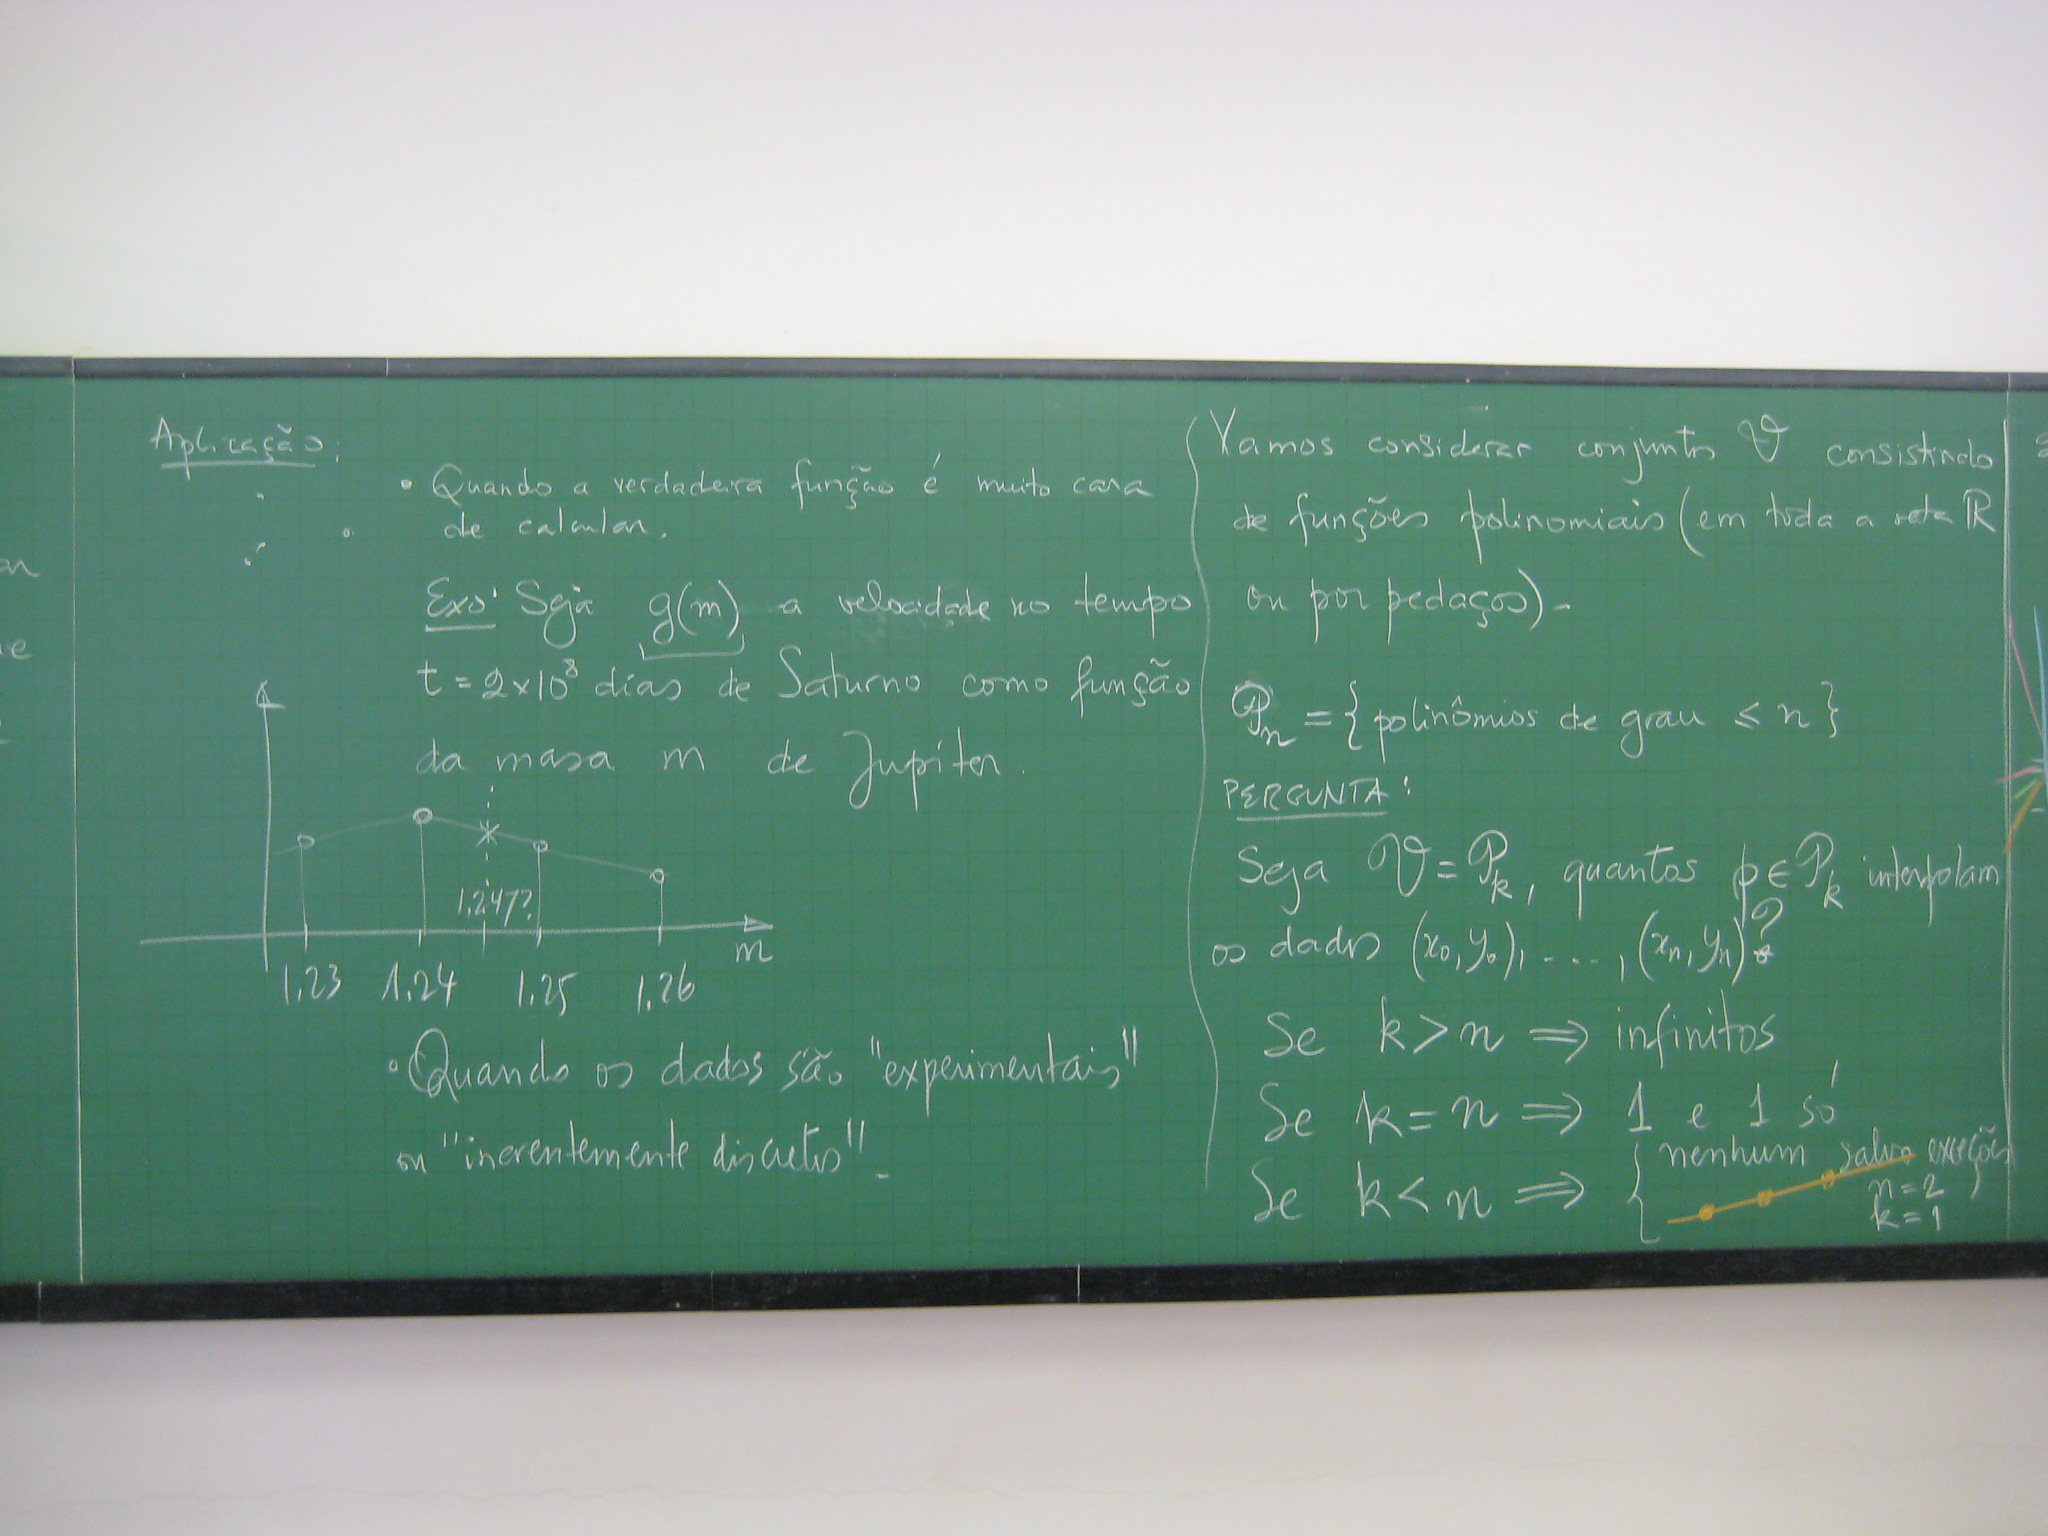 an
e
Aplicação:
• Quando a verdadeira função é muito cara
de calcular.
Exo: Seja g(m) a velocidade no tempo
t = 2×10⁸ dias de Saturno como função
da masa m de Jupiter.
1.247?
m
1.23 1.24 1.25 1.26
• Quando os dados são "experimentais"
ou "inerentemente discretos".
Vamos considerar conjuntos V consistindo
de funções polinomiais (em toda a reta ℝ
ou por pedaços).
Pₙ = {polinômios de grau ≤ n}
PERGUNTA:
Seja V = Pₖ, quantos p ∈ Pₖ interpolam
os dados (x₀, y₀), ...., (xₙ, yₙ)?
Se k > n ⇒ infinitos
Se k = n ⇒ 1 e 1 só
Se k < n ⇒ { nenhum salvo exceções
n = 2
k = 1